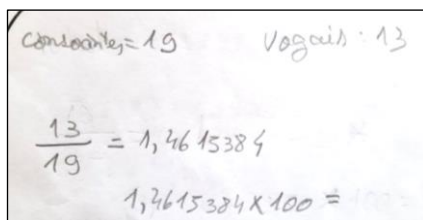 consoantes = 19 Vogais : 13
13/19 = 1,4615384
1,4615384 x 100 =